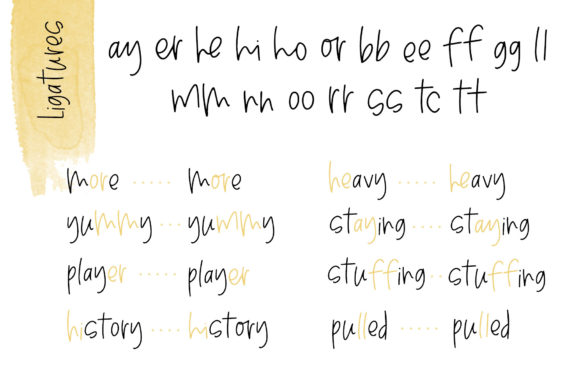 Ligatures
ay er he hi ho or bb ee ff gg ll
mm nn oo rr ss tc tt
more ..... more
yummy ... yummy
player ..... player
history .... history
heavy ..... heavy
staying .... staying
stuffing .. stuffing
pulled ..... pulled